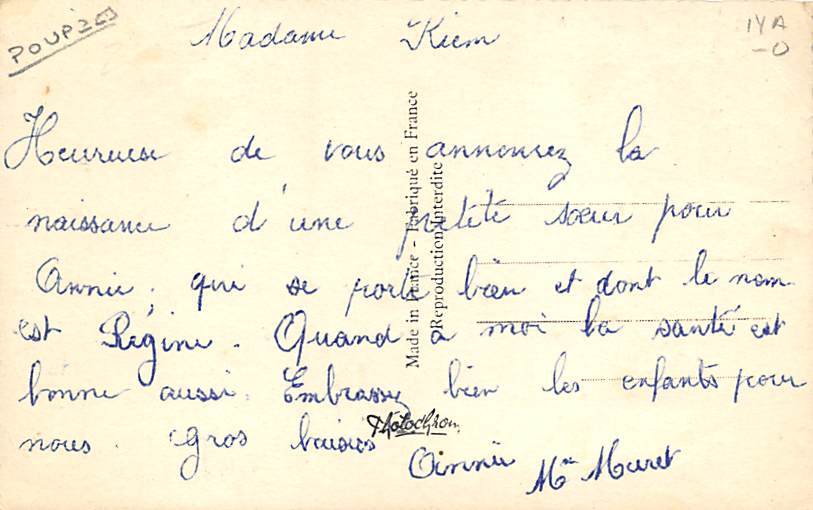 POUPÉES
Madame Kiem
Heureuse de vous annoncez la
naissance d'une petite sœur pour
Annie, qui se porte bien et dont le nom
est Régine. Quand a moi la santé est
bonne aussi. Embrassez bien les enfants pour
nous. Gros baisers
Annie Mme Muret
Photochrom
Made in France - Fabriqué en France
Reproduction Interdite